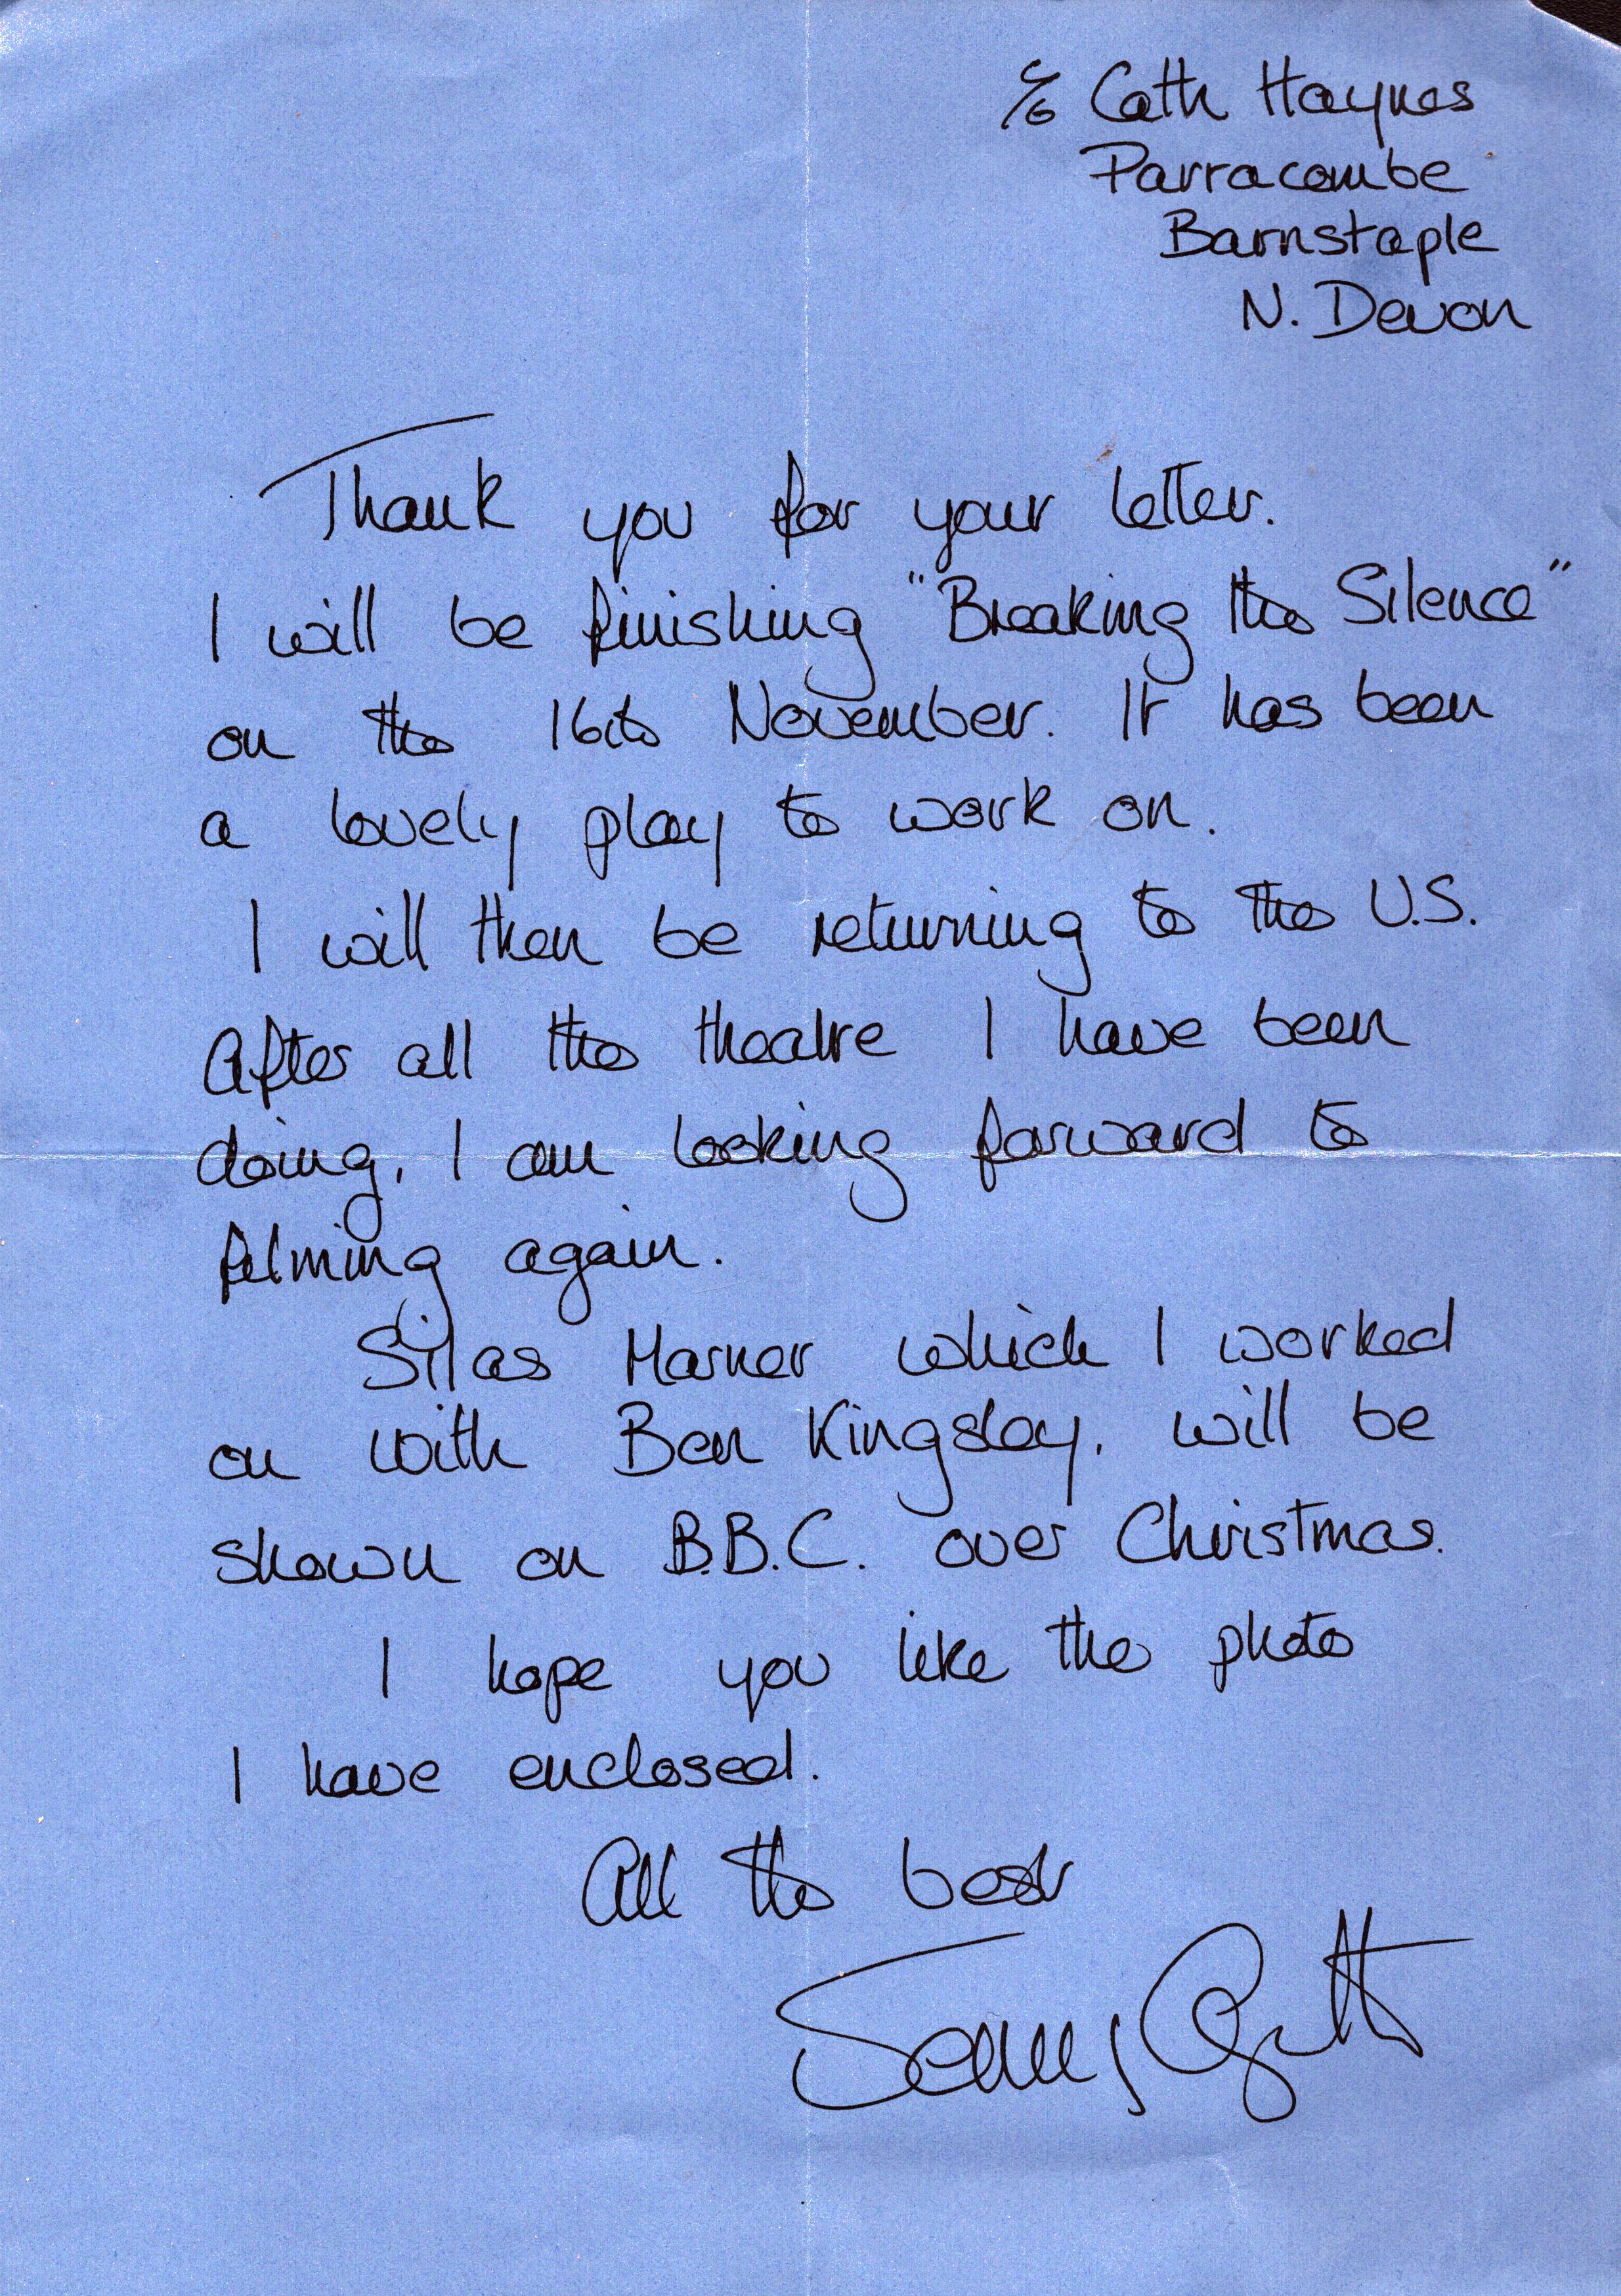 c/o Cath Haynes
Parracombe
Barnstaple
N. Devon
Thank you for your letter.
I will be finishing "Breaking the Silence"
on the 16th November. It has been
a lovely play to work on.
I will then be returning to the U.S.
After all the theatre I have been
doing, I am looking forward to
filming again.
Silas Marner which I worked
on with Ben Kingsley, will be
shown on B.B.C. over Christmas.
I hope you like the photo
I have enclosed.
All the best
Jenny Agutter